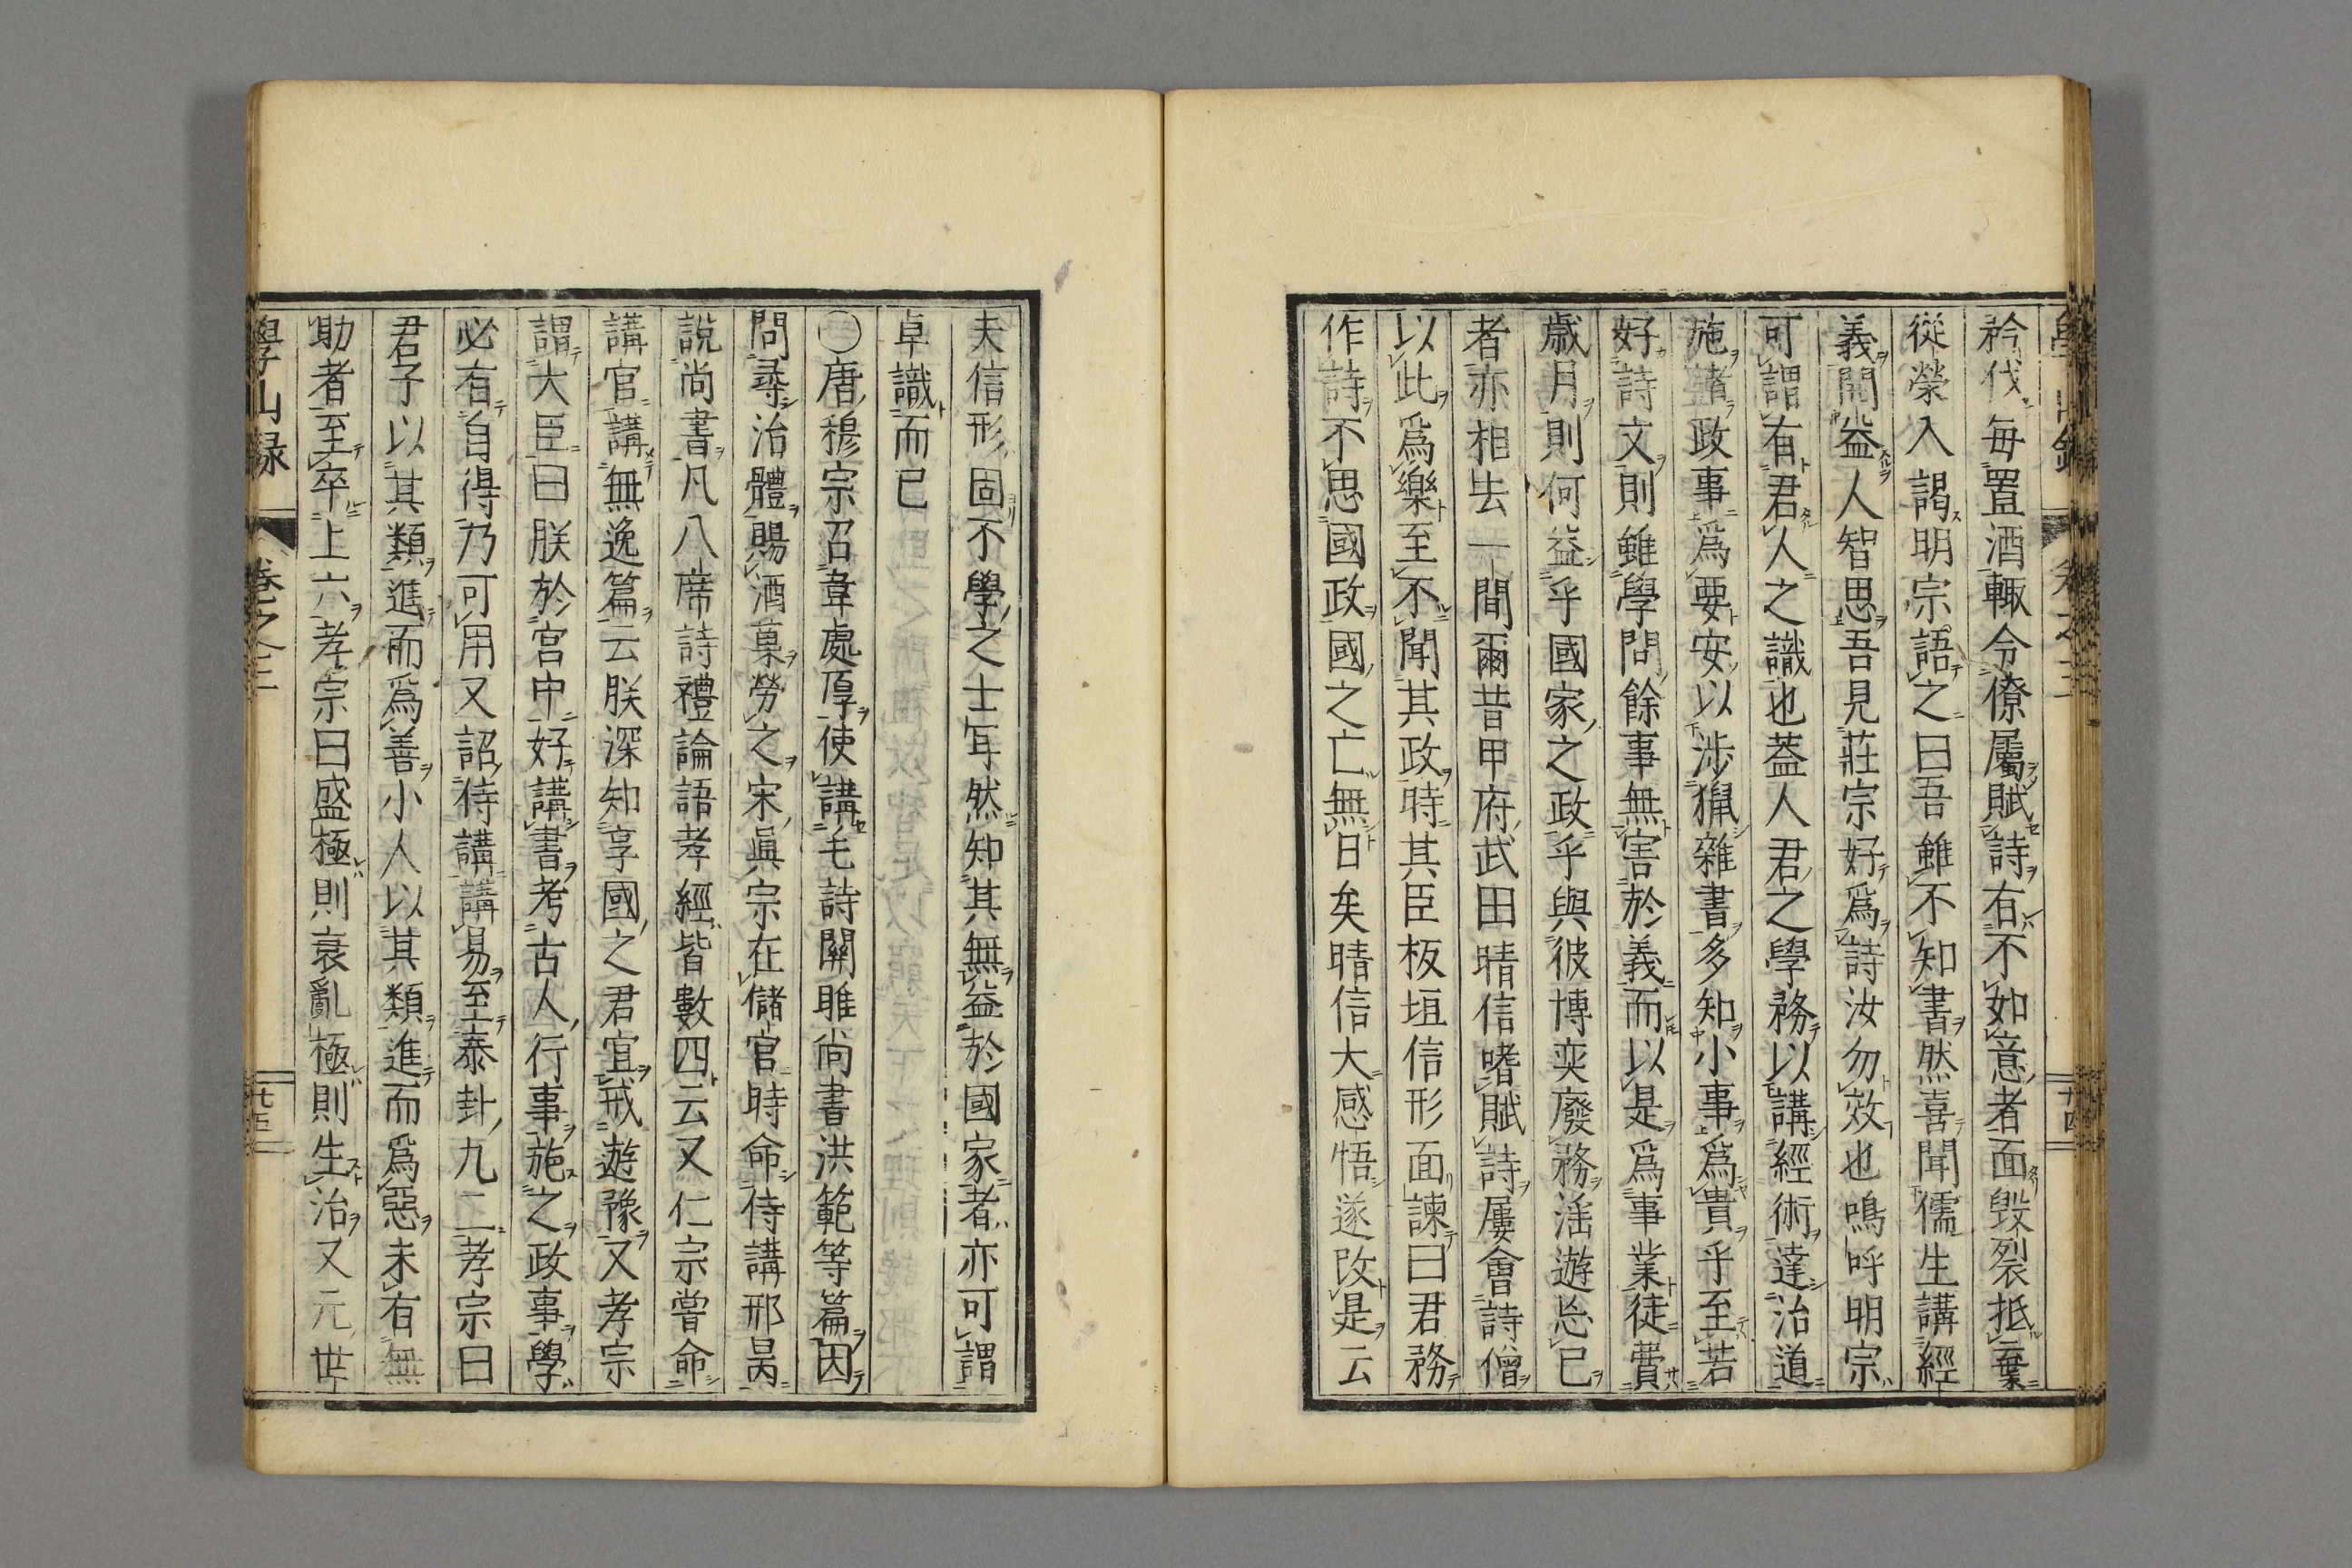 矜伐毎置酒輙令僚屬賦詩有不如意者面毀裂抵棄
從榮入謁明宗語之曰吾雖不知書然喜聞儒生講經
義開益人智思吾見莊宗好爲詩汝勿效也嗚呼明宗
可謂有君人之識也葢人君之學務以講經術達治道
施諸政事爲要安以渉猟雜書多知小事爲貴乎至若
好詩文則雖學問餘事無害於義而以是爲事業徒費
歳月則何益乎國家之政乎與彼博奕廢務滛遊忘已
者亦相去一間爾昔甲府武田晴信嗜賦詩屢會詩僧
以此爲樂至不聞其政時其臣板垣信形面諫曰君務
作詩不思國政國之亡無日矣晴信大感悟遂改是云
夫信形固不學之士耳然知其無益於國家者亦可謂
卓識而已
〇唐穆宗召韋處厚使講毛詩關雎尚書洪範等篇因
問尋治體賜酒菓勞之宋眞宗在儲官時命侍講邢昺
說尚書凡八席詩禮論語孝經皆數四云又仁宗嘗命
講官講無逸篇云朕深知享國之君宜戒遊豫又孝宗
謂大臣曰朕於宮中好講書考古人行事施之政事學
必有自得乃可用又詔侍講講易至泰卦九二孝宗曰
君子以其類進而爲善小人以其類進而爲惡未有無
助者至卒上六孝宗曰盛極則衰亂極則生治又元世
學山録
卷之三
廿五